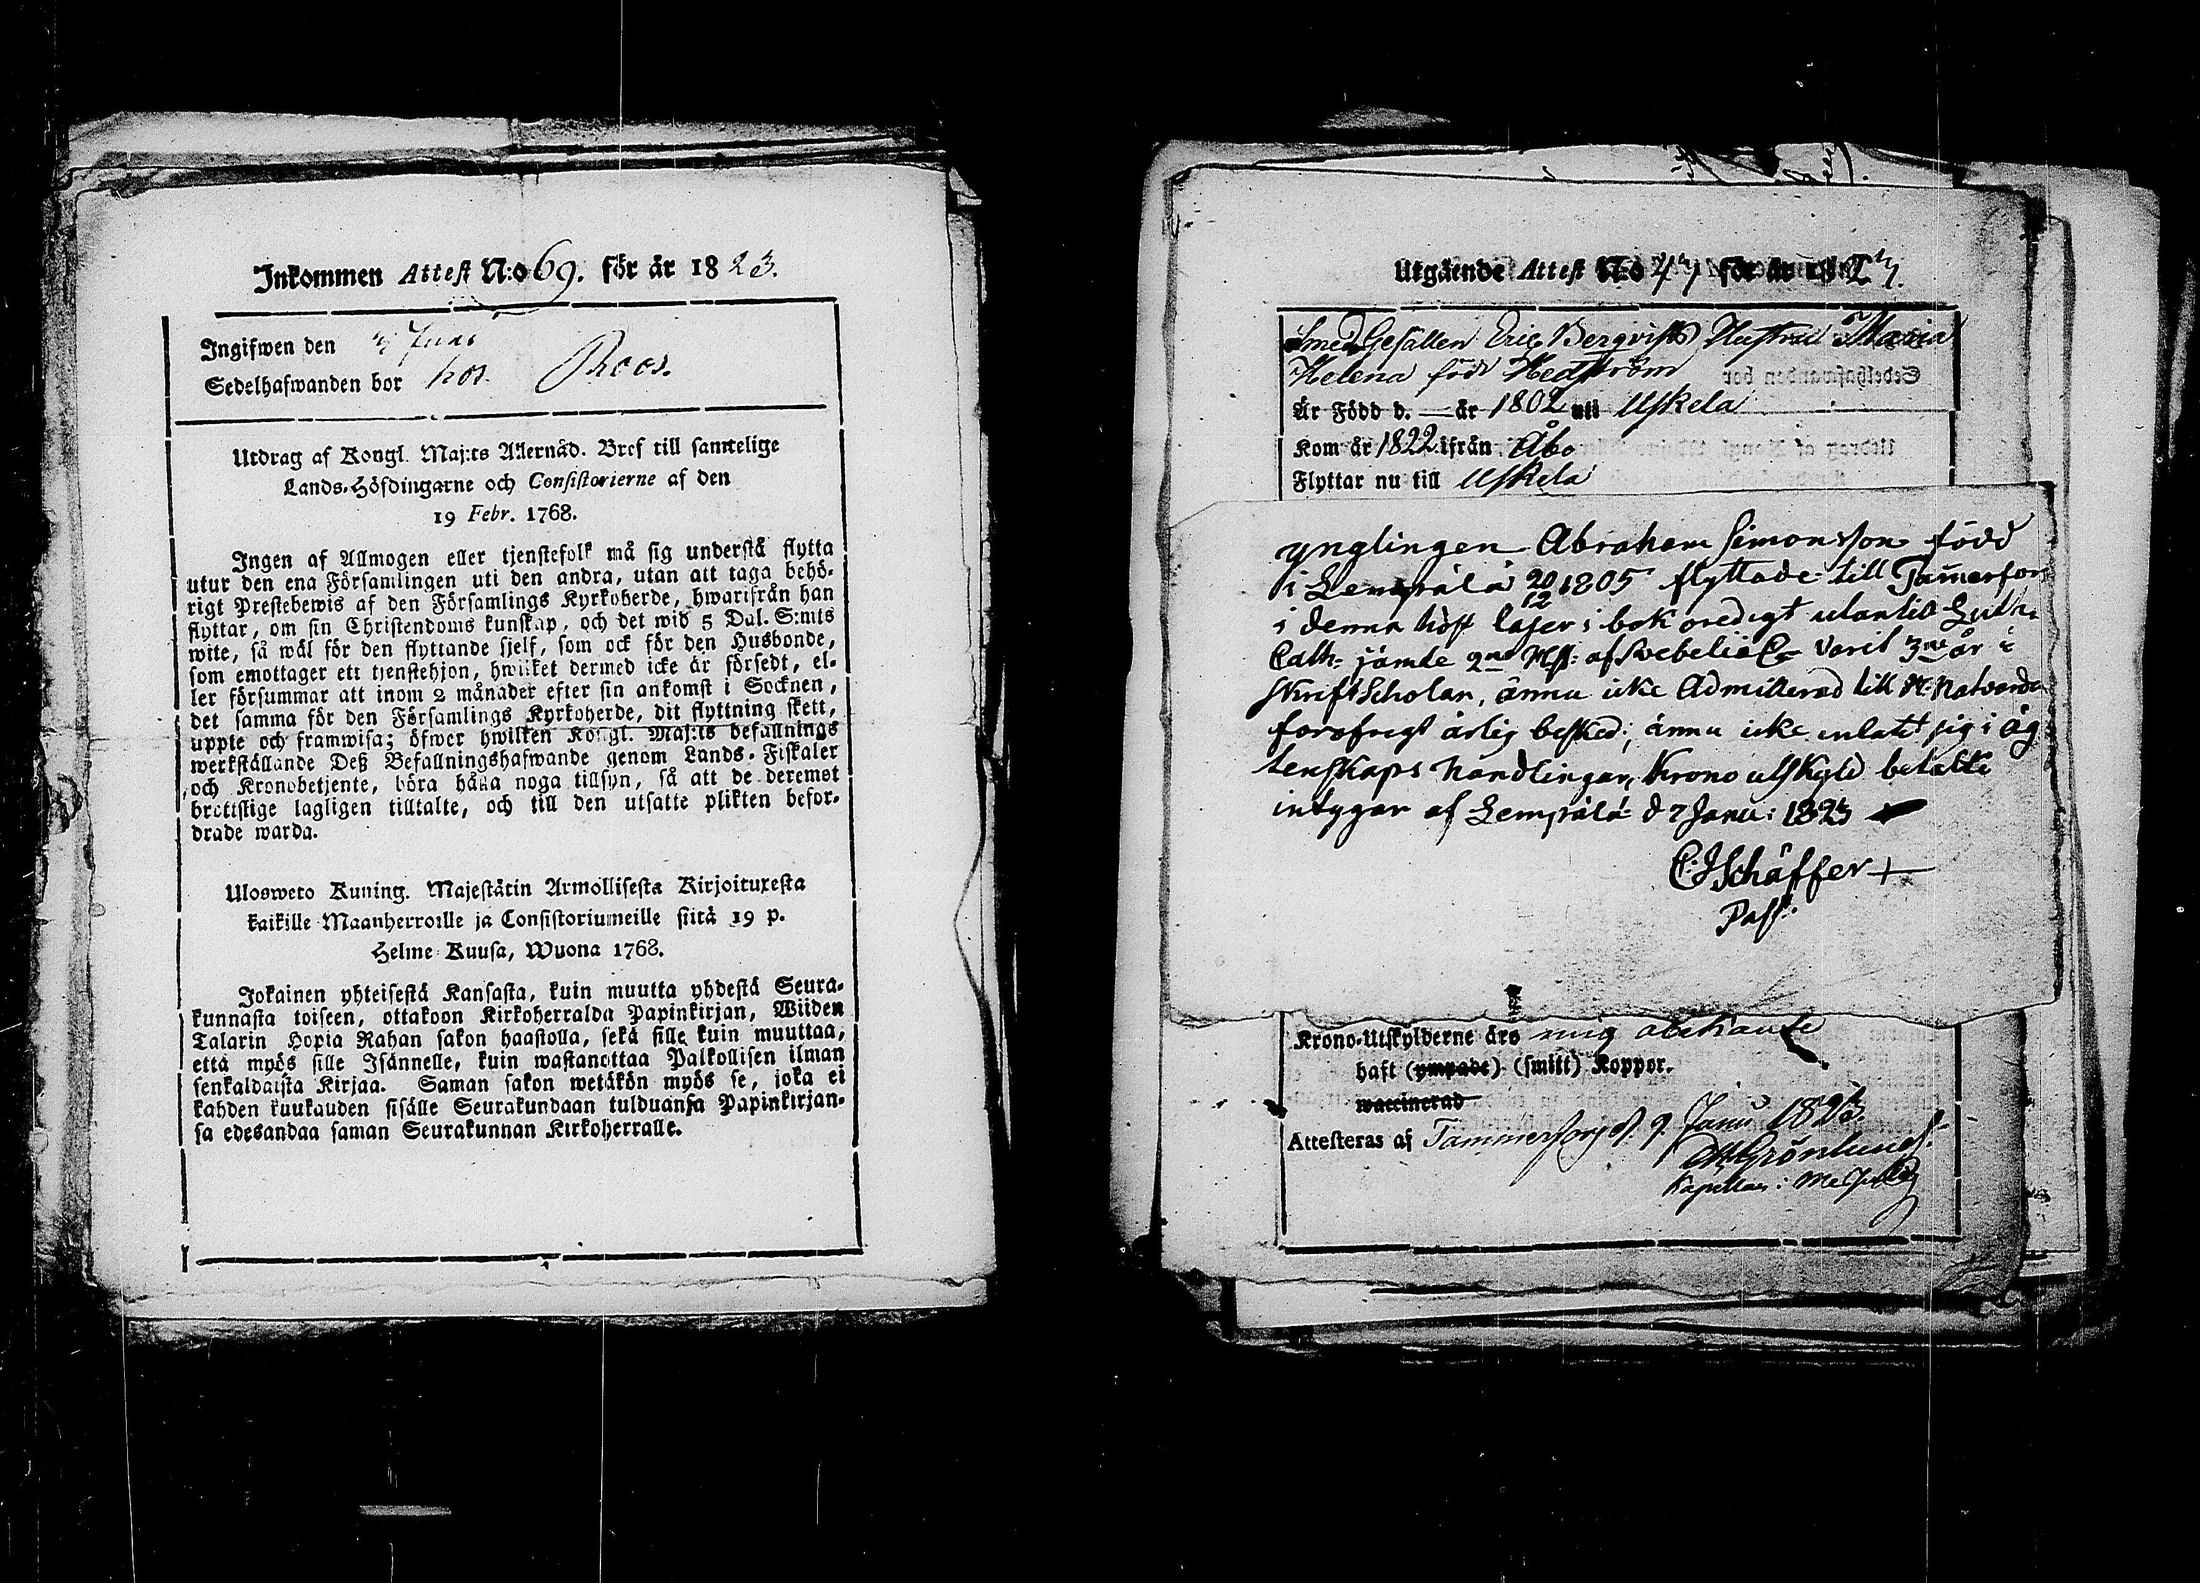 Inkommen Attest N:o 69. för år 1823.
Ingifwen den 3 Juni
Sedelhafwanden bor hos Roos.
Utdrag af Kongl. Maj:ts Allernåd. Bref till samtelige
Lands-Höfdingarne och Consistorierne af den
19 Febr. 1768.
Ingen af Allmogen eller tjenstefolk må sig understå flytta
utur den ena Församlingen uti den andra, utan att taga behö-
rigt Prestebewis af den Församlings Kyrkoherde, hwarifrån han
flyttar, om sin Christendoms kunskap, och det wid 5 Dal. S:mts
wite, så wäl för den flyttande sjelf, som ock för den Husbonde,
som emottager ett tjenstehjon, hwilket dermed icke är försedt, el-
ler försummar att inom 2 månader efter sin ankomst i Socknen,
det samma för den Församlings Kyrkoherde, dit flyttning skett,
uppte och framwisa; öfwer hwilken Kongl. Maj:ts befallnings
werkställande Deß Befallningshafwande genom Lands-Fiskaler
och Kronobetjente, böra hålla noga tillsyn, så att de deremot
brottslige lagligen tilltalte, och till den utsatte plikten befor-
drade warda.
Ulosweto Kuning. Majestätin Armollisesta Kirjoituxesta
kaikille Maanherroille ja Consistoriumeille siitä 19 p.
Helme Kuusa, Wuona 1768.
Jokainen yhteisestä Kansasta, kuin muutta yhdestä Seura-
kunnasta toiseen, ottakoon Kirkoherralda Papinkirjan, Wiiden
Talarin Hopia Rahan sakon haastolla, sekä sille kuin muuttaa,
että myös sille Isännelle, kuin wastanottaa Palkollisen ilman
senkaldaista Kirjaa. Saman sakon wetäkön myös se, joka ei
kahden kuukauden sisälle Seurakundaan tulduansa Papinkirjan-
sa edesandaa saman Seurakunnan Kirkoherralle.
Utgående Attest N:o för år
Smed Gesällen Eric Bergvists Hustru Maria
Helena född Hedström
Är Född d. — år 1802 uti Uskela
Kom år 1822 ifrån Åbo
Flyttar nu till Uskela
ynglingen Abraham Simonsson född
i Lempälä 20/12 1805 flyttade till Tammerfors
i denna höst läser i bok oredigt utantill Luth:
Cath: jämte 2ne af Swebelii varit 3ne år i
Skriftscholan, ännu icke Admitterad till H: Natvarden
för öfrigt ärlig besked; ännu icke inlatit sig i äg
tenskaps handlingar, Krono utskyld betalte
intygar af Lempälä d 7 Janu: 1823
C: J Schäffer
Past:
Krono-Utskylderne äro mig obekante
haft (ympade) (smitt) Koppor.
waccinerad
Attesteras af Tammerfors d. 9 Janu 1823.
Grönlund
Kapellan: